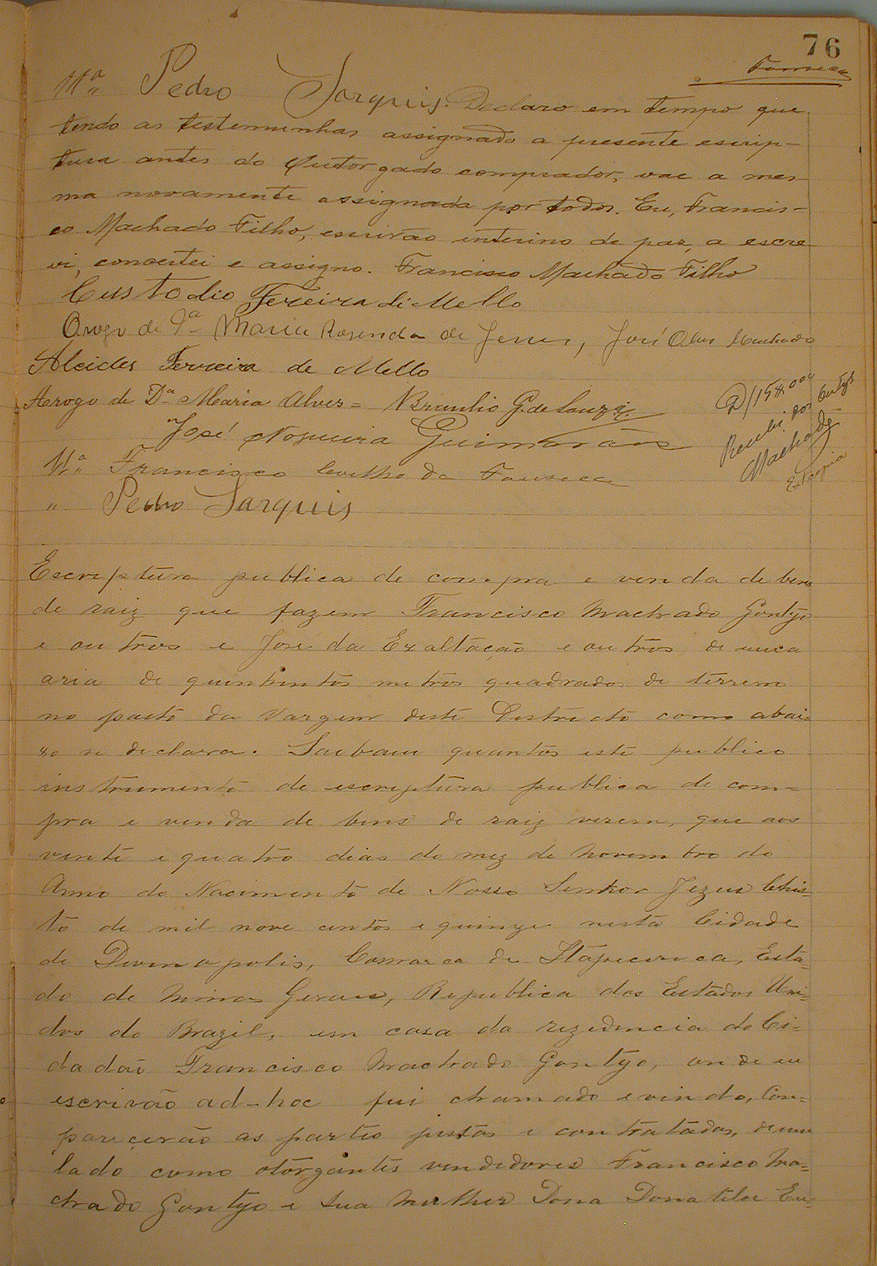 76
Fonseca
Mª Pedro Sarquis. Declaro em tempo que
tendo as testemunhas assignado a presente escrip-
tura antes do Outorgado comprador, vae a mes-
ma novamente assignada por todos. Eu, Francis-
co Machado Filho, escrivão interino de paz, a escre
vi, concertei e assigno. Francisco Machado Filho
Custodio Fereira di Mello
Arogo de Dª Maria Rosenda de Jesus, José Alves Machado
Alcides Ferreira de Mello
Aerogo de Dª Maria Alves = Braulio G. de Souza
José Nogueira Guimarães
D/15#000
Recebi dos Gontijo
Machado
Mª Francisco Coelho da Fonseca
" Pedro Sarquis
Escriptura publica de compra e venda de bens
de raiz que fazem Francisco Machado Gontijo
e outros e José da Exaltação e outros, de uma
aria de quinhentos metros quadrados de terreno
no pasto da Vargem deste Destrecto como abai-
xo se declara. Saibam quantos este publico
instrumento de escriptura publica de com-
pra e venda de bens de raiz virem, que aos
vinte e quatro dias do mez de Novembro do
Anno do Nacimento de Nosso Senhor Jezus Chris-
to de mil nove centos e quinze nesta Cidade
de Divinopolis, Comarca de Itapecerica, Esta-
do de Minas Geraes, Republica dos Estados Uni-
dos do Brazil, em casa da rezidencia do Ci-
dadão Francisco Machado Gontijo, onde eu
escrivão ad-hoc fui chamado e vindo, Con-
parecerão as partes justas e contratadas, de um
lado como otorgantes vendedores Francisco Ma-
chado Gontijo e sua mulher Dona Donatilla Eu-